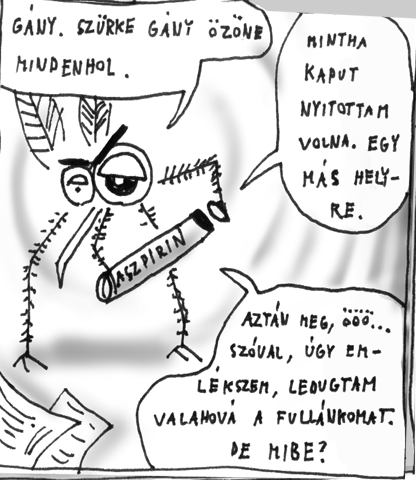 GÁNY. SZÜRKE GÁNY ÖZÖNE
MINDENHOL.
MINTHA
KAPUT
NYITOTTAM
VOLNA. EGY
MÁS HELY-
RE.
ASZPIRIN
AZTÁN MEG, ÖÖÖ...
SZÓVAL, ÚGY EM-
LÉKSZEM, LEDUGTAM
VALAHOVÁ A FULLÁNKOMAT.
DE MIBE?